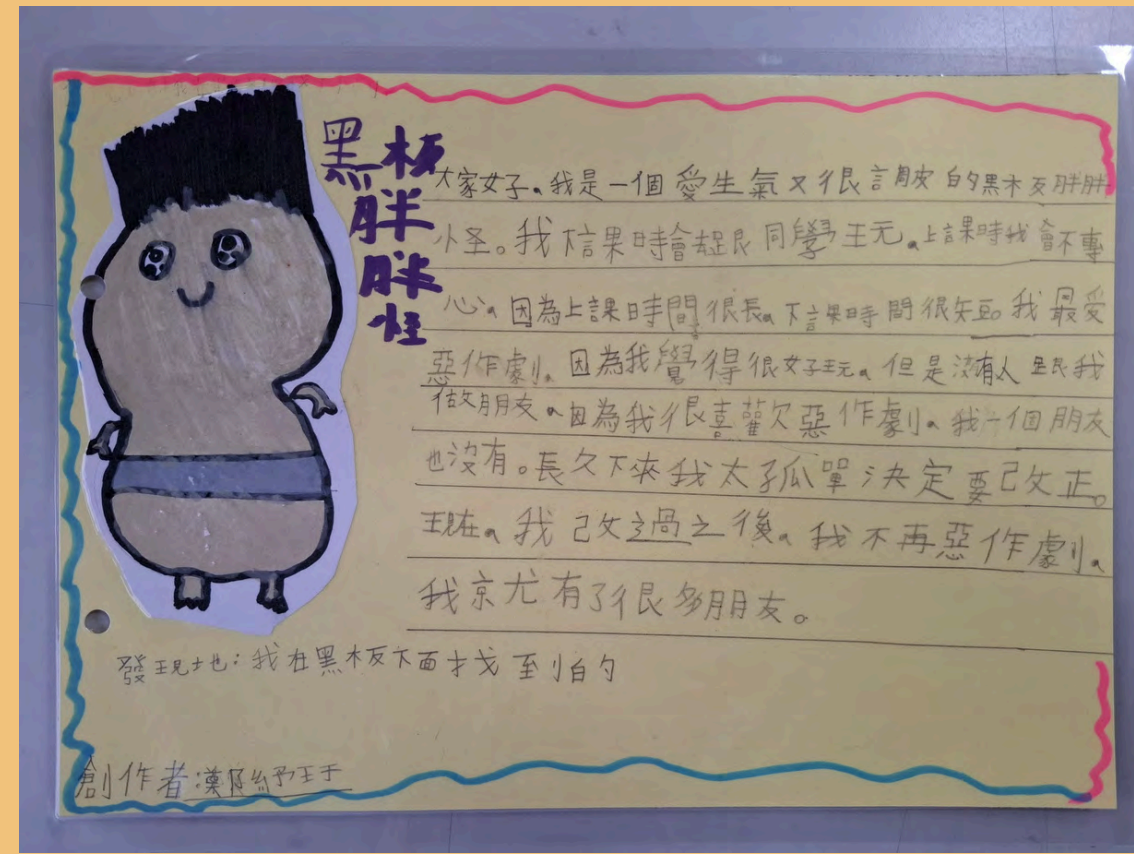 黑板
胖
胖
怪
大家好。我是一個愛生氣又很調皮的黑板胖胖
怪。我下課時會跟同學玩。上課時我會不專
心。因為上課時間很長。下課時間很短。我最愛
惡作劇。因為我覺得很好玩。但是沒有人跟我
做朋友。因為我很喜歡惡作劇。我一個朋友
也沒有。長久下來我太孤單決定要改正。
現在。我改過之後。我不再惡作劇。
我就有了很多朋友。
發現地：我在黑板下面找到的
創作者：